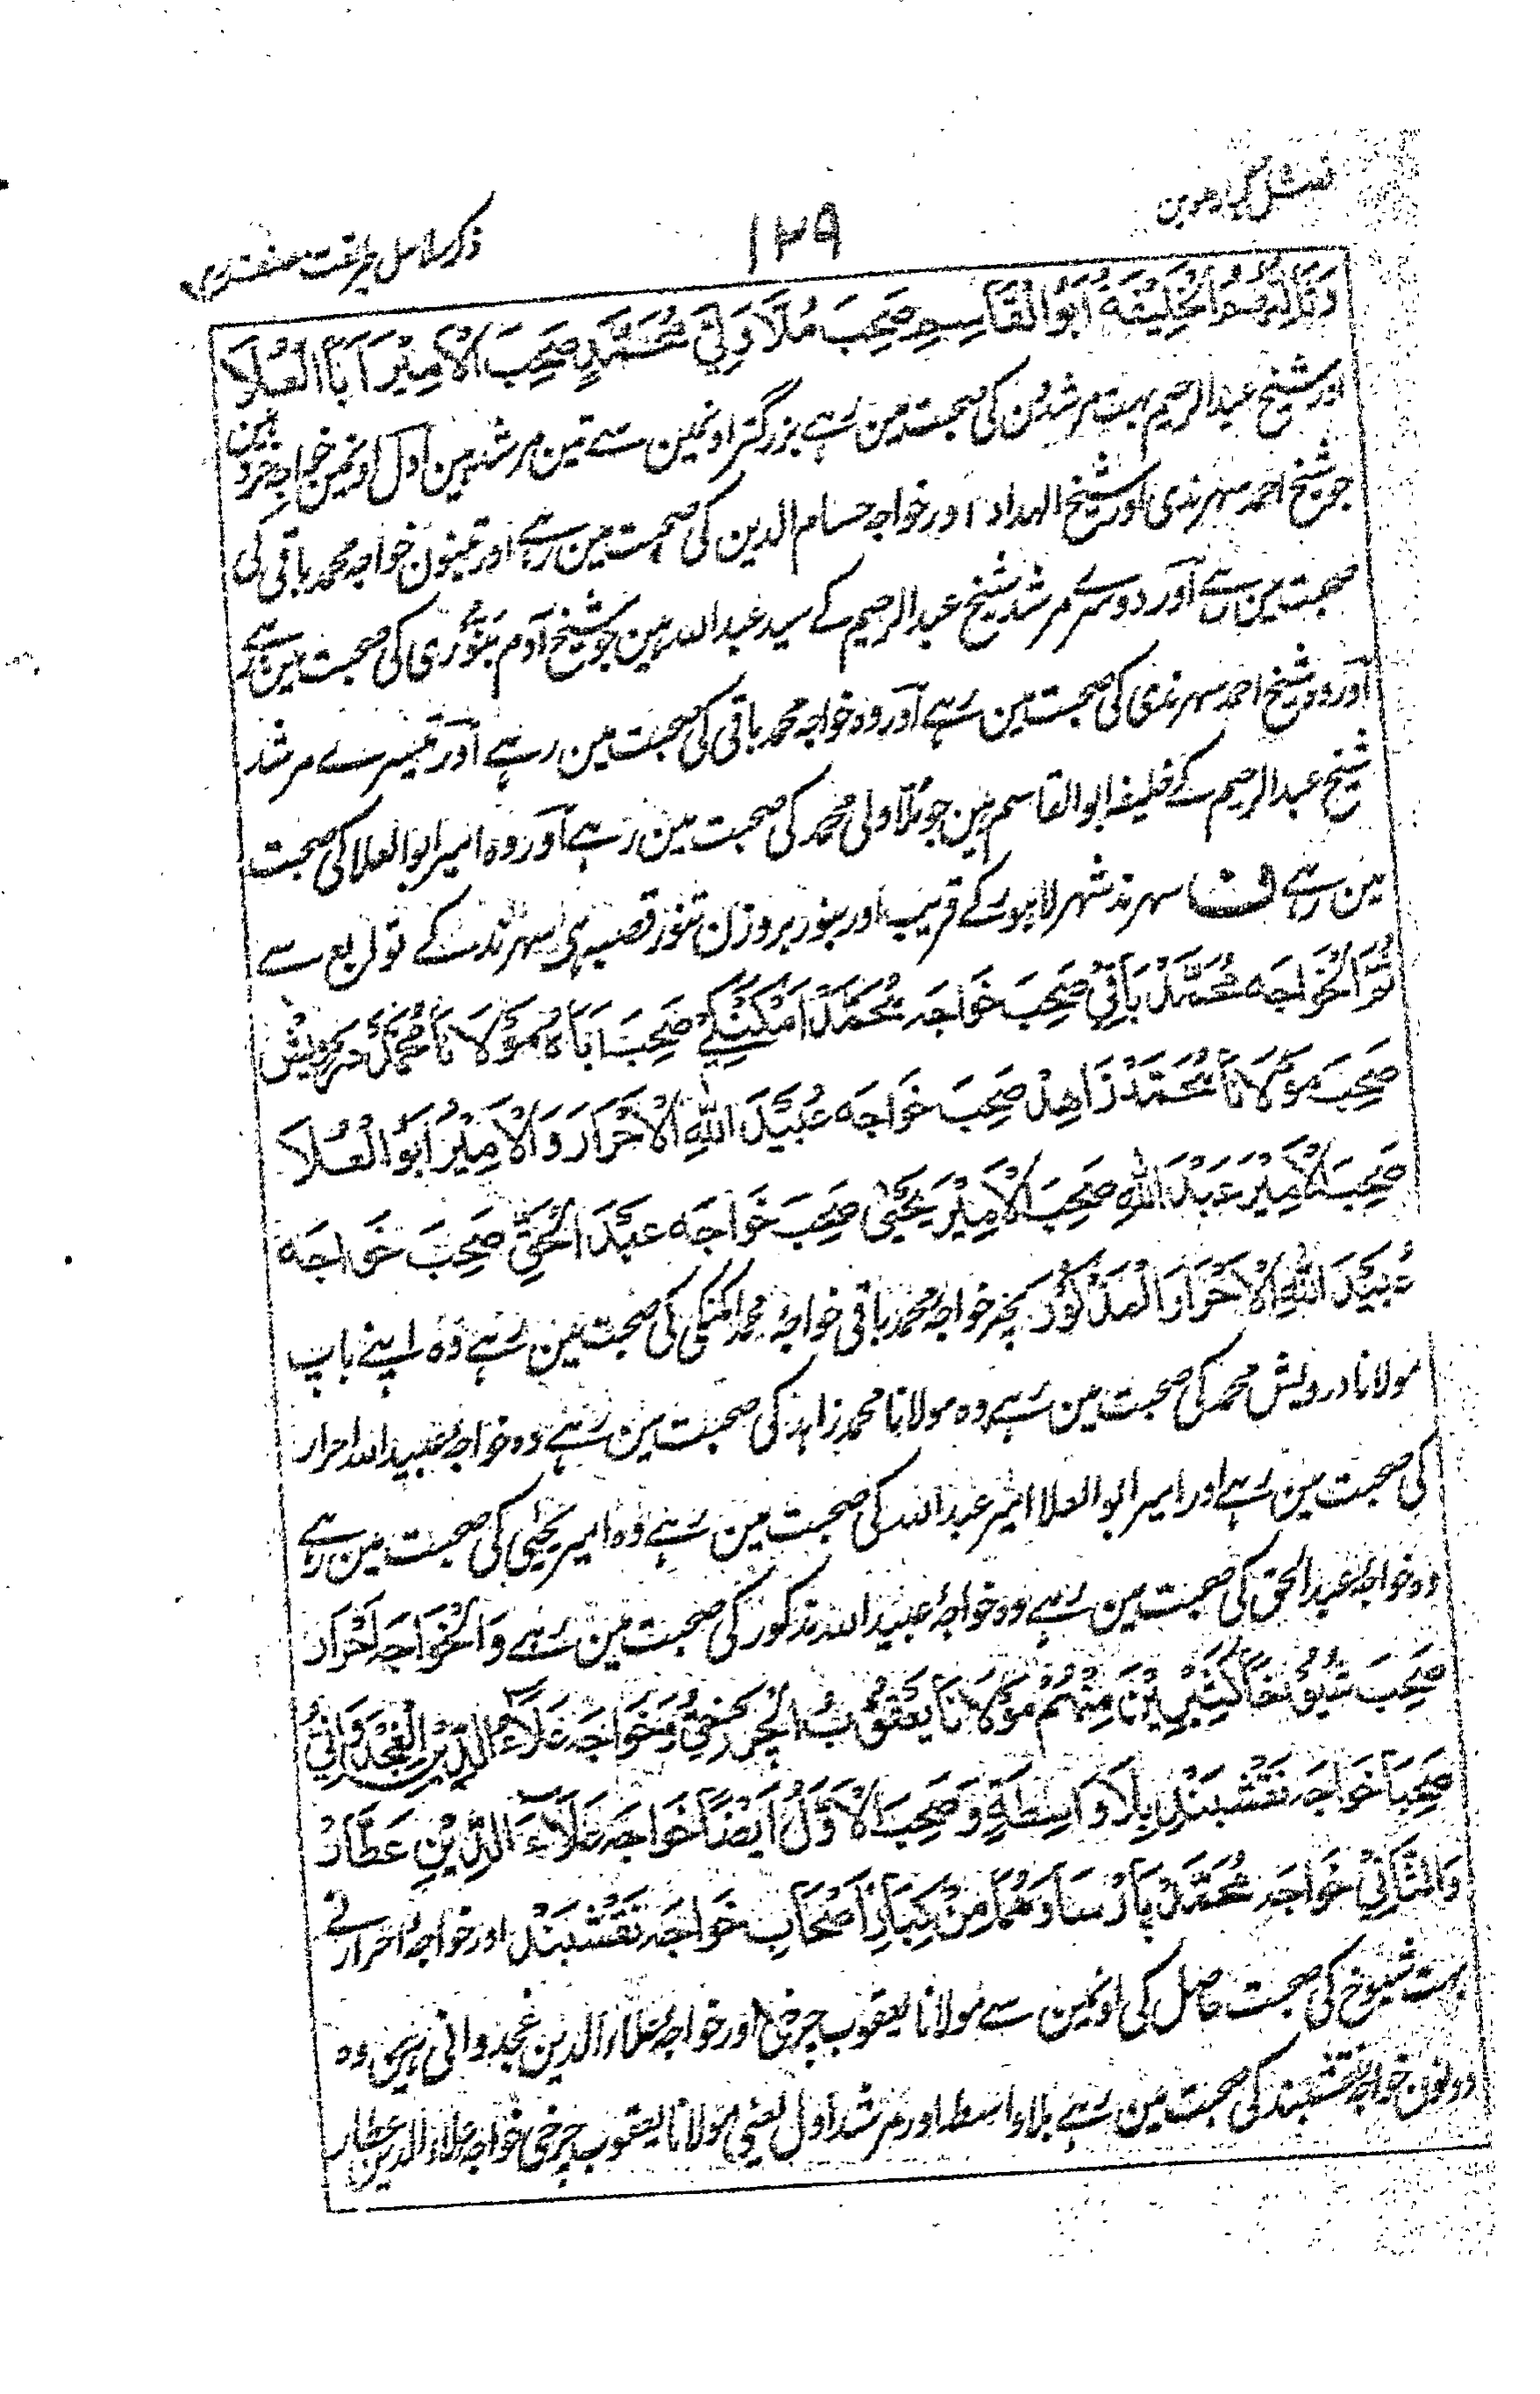 فصل گیارھوین
۱۲۹
ذکر سلاسل طریقت مصنف
وَثَالِثُهُمُ الْخَلِيْفَةُ اَبُو الْقَاسِمِ صَحِبَ مُلَّا وَلِيْ مُحَمَّدٍ صَحِبَ الْاَمِيْرَ اَبَا الْعُلَا
اور شیخ عبدالرحیم بہت مرشدون کی صحبت مین رہے بزرگتر اونمین سے تین مرشد ہین اول اونمین خواجہ خرد ہین
جو شیخ احمد سہرندی اور شیخ الہداد اور خواجہ حسام الدین کی صحبت مین رہے اور تینون خواجہ محمد باقی کی
صحبت مین رہے اور دوسرے مرشد شیخ عبدالرحیم کے سید عبداللہ ہین جو شیخ آدم بنوری کی صحبت مین رہے
اور وہ شیخ احمد سہرندی کی صحبت مین رہے اور وہ خواجہ محمد باقی کی صحبت مین رہے اور تیسرے مرشد
شیخ عبدالرحیم کے خلیفہ ابوالقاسم ہین جو ملا ولی محمد کی صحبت مین رہے اور وہ امیر ابوالعلا کی صحبت
مین رہے ف سہرند شہر لاہور کے قریب اور بنور بروزن تنور قصبہ ہی سہرند کے توابع سے
ثُمَّ الْخَوَاجَه مُحَمَّد بَاقِيْ صَحِبَ خَوَاجَه مُحَمَّد اَمْكَنْكِيْ صَحِبَ اَبَاهُ مَوْلَانَا مُحَمَّد دَرْوِيْش
صَحِبَ مَوْلَانَا مُحَمَّد زَاهِدْ صَحِبَ خَوَاجَه عُبَيْدَ اللهِ الْاَحْرَارَ وَالْاَمِيْرُ اَبُو الْعُلَا
صَحِبَ الْاَمِيْرَ عَبْدَ اللهِ صَحِبَ الْاَمِيْرَ يَحْيٰى صَحِبَ خَوَاجَه عَبْدَ الْحَقِّ صَحِبَ خَوَاجَه
عُبَيْدَ اللهِ الْاَحْرَارَ الْمَذْكُوْرَ پھر خواجہ محمد باقی خواجہ محمد امکنکی کی صحبت مین رہے وہ اپنے باپ
مولانا درویش محمد کی صحبت مین رہے وہ مولانا محمد زاہد کی صحبت مین رہے وہ خواجہ عبیداللہ احرار
کی صحبت مین رہے اور امیر ابوالعلا امیر عبداللہ کی صحبت مین رہے وہ امیر یحیٰی کی صحبت مین رہے
وہ خواجہ عبدالحق کی صحبت مین رہے وہ خواجہ عبیداللہ مذکور کی صحبت مین رہے وَالْخَوَاجَه اَحْرَار
صَحِبَ شُيُوْخًا كَثِيْرِيْنَ مِنْهُمْ مَوْلَانَا يَعْقُوْبُ الْچَرْخِيُّ وَخَوَاجَه عَلَاءُ الدِّيْنِ الْغُجْدَوَانِيُّ
صَحِبَا خَوَاجَه نَقْشْبَنْدْ بِلَا وَاسِطَةٍ وَصَحِبَ الْاَوَّلُ اَيْضًا خَوَاجَه عَلَاءَ الدِّيْنِ عَطَّارْ
وَالثَّانِيْ خَوَاجَه مُحَمَّد پَارْسَا وَهُمَا مِنْ كِبَارِ اَصْحَابِ خَوَاجَه نَقْشْبَنْدْ اور خواجہ احرار نے
بہت شیوخ کی صحبت حاصل کی اونمین سے مولانا یعقوب چرخی اور خواجہ علاء الدین غجدوانی ہین وہ
دونون خواجہ نقشبند کی صحبت مین رہے بلا واسطہ اور مرشد اول یعنی مولانا یعقوب چرخی خواجہ علاء الدین عطار